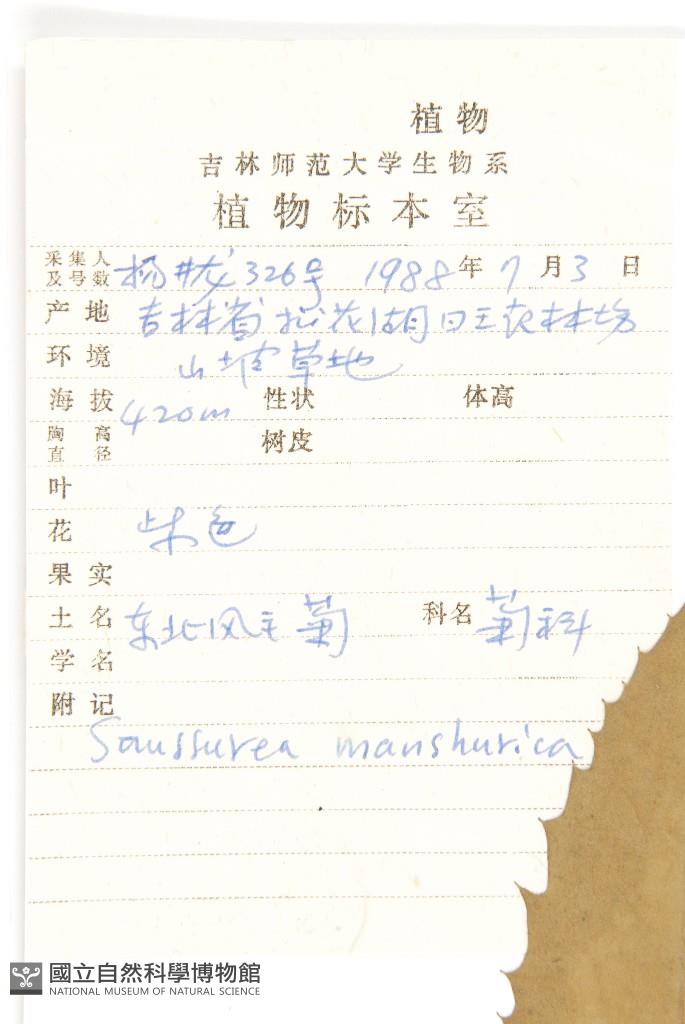 植物
吉林师范大学生物系
植物标本室
采集人及号数 杨 326号 1988年7月3日
产地 吉林省松花湖 林场
环境 山坡草地
海拔 420m 性状 体高
胸高直径 树皮
叶
花 柴色
果实
土名 东北风毛菊 科名 菊科
学名
附记
Saussurea manshurica
國立自然科學博物館
NATIONAL MUSEUM OF NATURAL SCIENCE